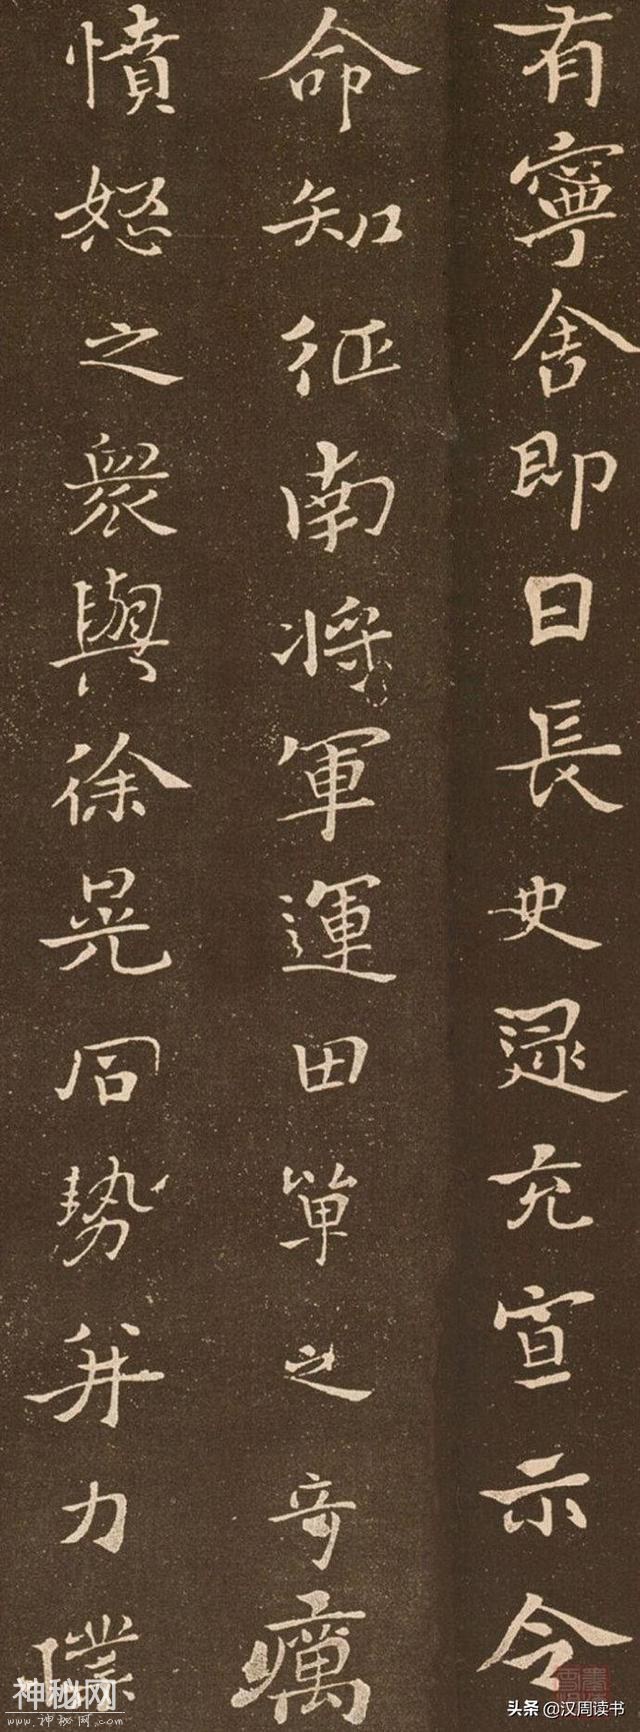 有寧舍即日長史逯充宣示令
命知征南將軍運田單之奇厲
憤怒之衆與徐晃同勢并力撲
神秘网
www.神秘网.com
头条 @汉周读书